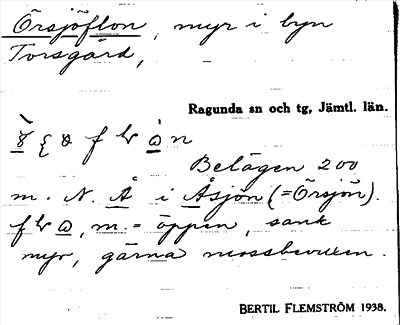 Örsjöflon, myr i byn
Torsgård,
Ragunda sn och tg, Jämtl. län.
Belägen 200
m. N. Å i Åsjön (=Örsjön).
m. = öppen, sank
myr, gärna mossbevuxen.
BERTIL FLEMSTRÖM 1938.